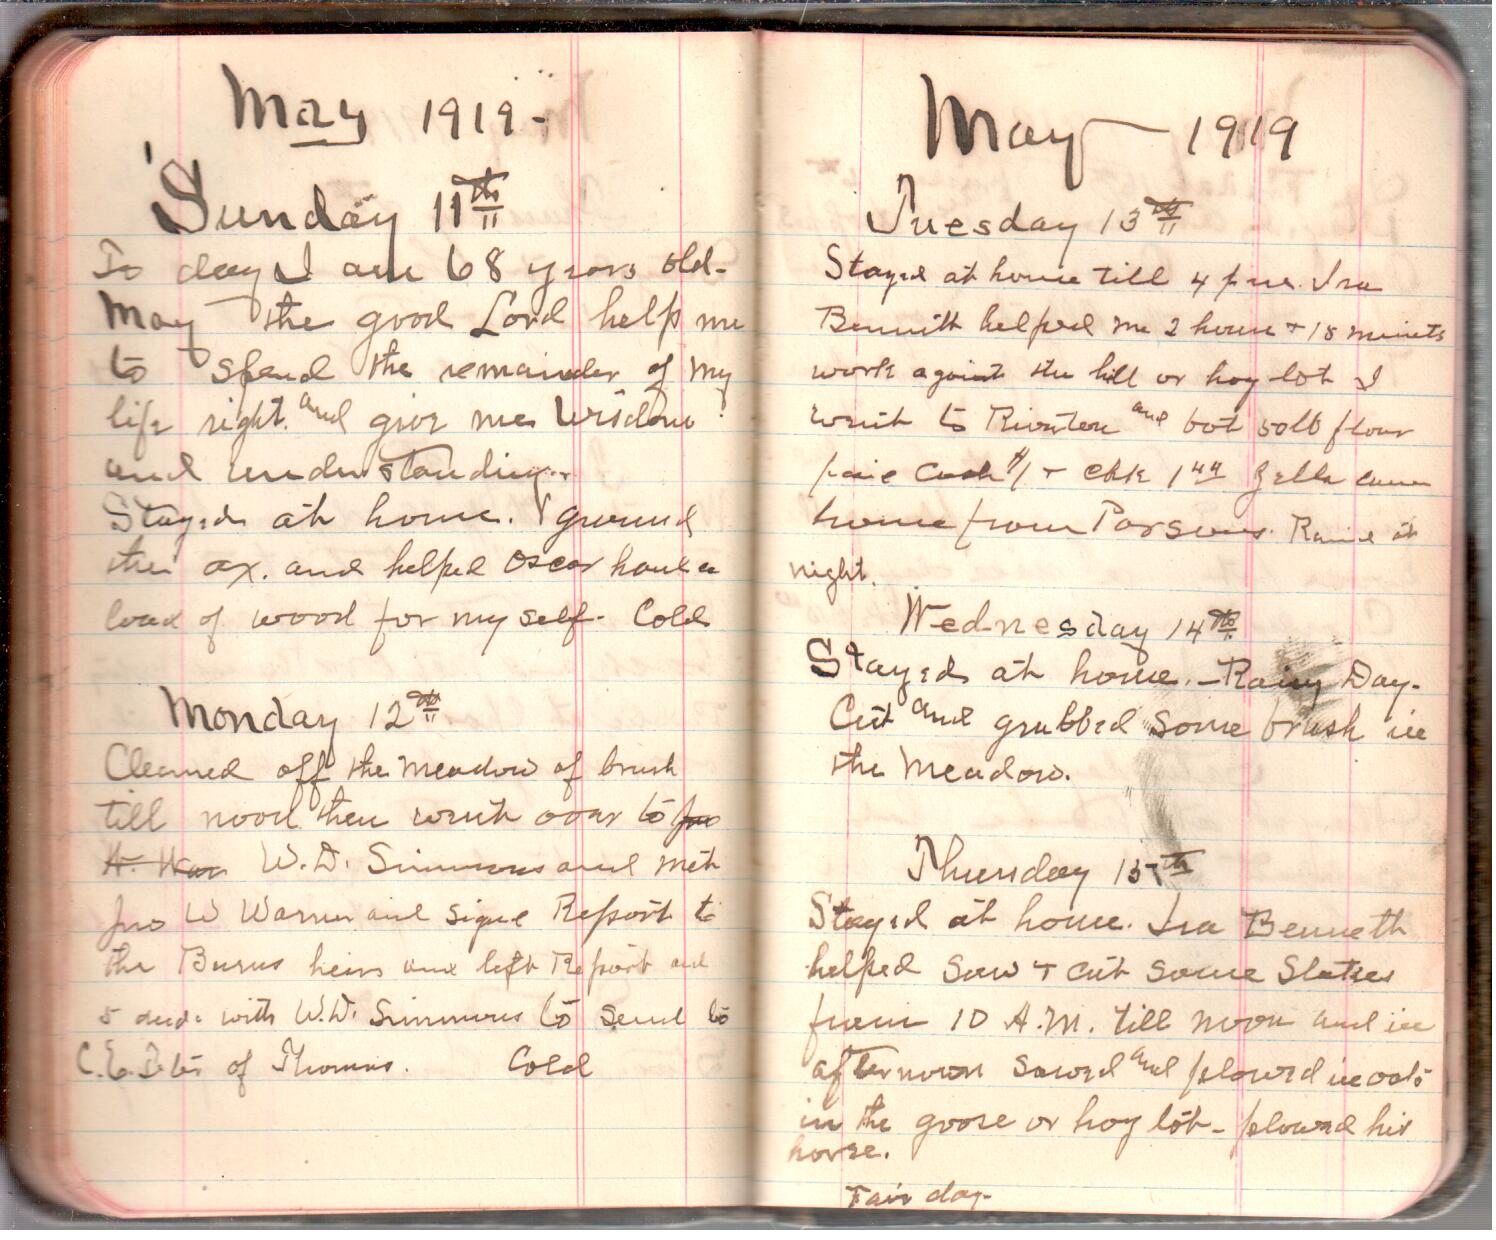 May 1919-
Sunday 11th
To day I am 68 years old-
May the good Lord help me
to spend the remainder of my
life right. and give me wisdom
and understanding.
Stayed at home. ground
the ax. and helped Oscar haul a
load of wood for my self- Cold
Monday 12th
Cleaned off the meadow of brush
till noon then went over to Jno
W. D. Simmons and met
Jno W Warner and signe Report to
the Burns heirs and left Report and
5 deeds with W. W. Simmons to send to
C. E. of Thomas. Cold
May - 1919
Tuesday 13th
Stayed at home till 4 p m. Ira
Bennett helped me 2 hours + 15 minits
work against the hill or hog lot I
went to and bot 50 lb flour
paie Cash $1 + chk 1 44 Zella came
home from Parsons. Raine at
night.
Wednesday 14th
Stayed at home. - Rainy Day-
Cut and grubbed some brush in
the Meadow.
Thursday 15th
Stayed at home. Ira Benneth
helped Saw + cut some
from 10 A.M. till noon and in
afternoon Sowed and plowed in oats
in the goose or hog lot - plowed his
horse.
Fair day-